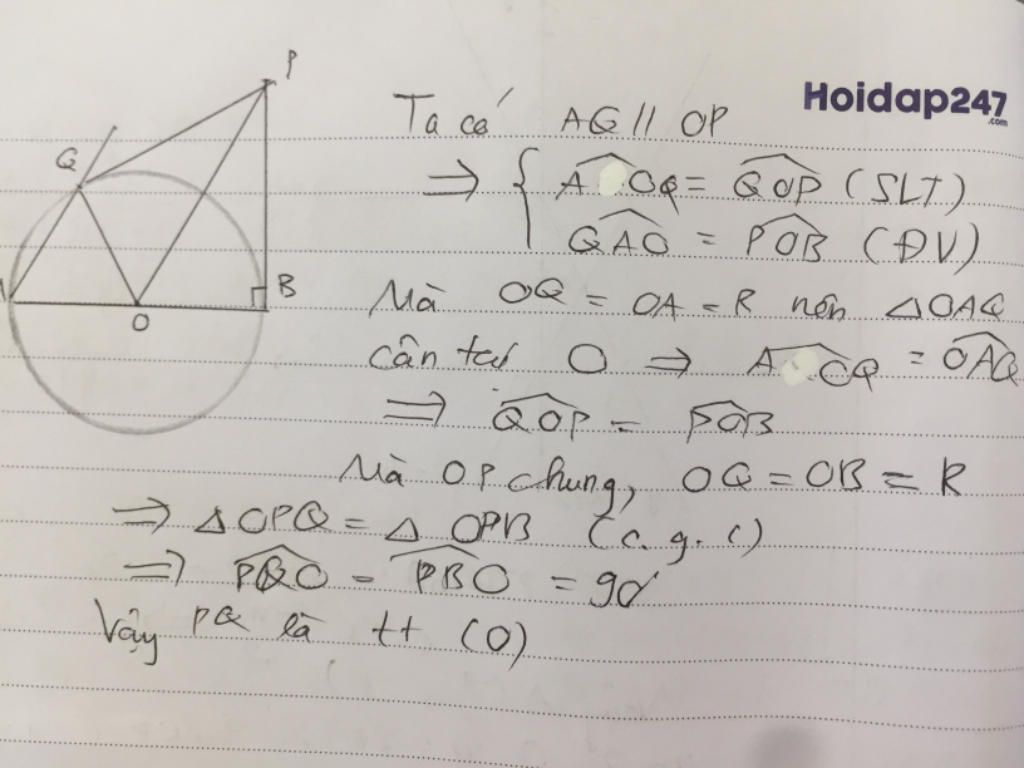 P
Q
B
O
Hoidap247
.com
Ta có AQ // OP
⇒ { A OQ = QOP (SLT)
QAO = POB (ĐV)
Mà OQ = OA = R nên △OAQ
cân tại O ⇒ A OQ = OAQ
⇒ QOP = POB
Mà OP chung, OQ = OB = R
⇒ △OPQ = △OPB (c.g.c)
⇒ PQO = PBO = 90°
Vậy PQ là tt (O)